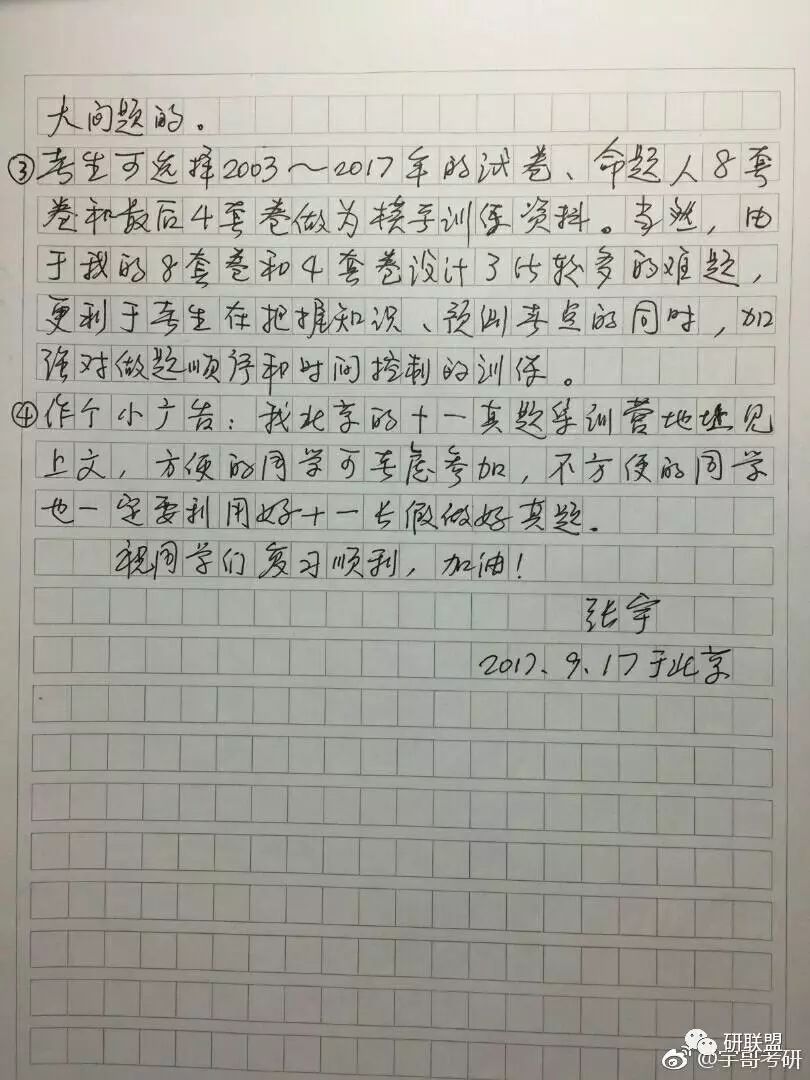 大问题的。
③考生可选择2003～2017年的试卷、命题人8套
卷和最后4套卷做为模考训练资料。当然，由
于我的8套卷和4套卷设计了比较多的难题，
更利于考生在把握知识、预测考点的同时，加
强对做题顺序和时间控制的训练。
④作个小广告：我北京的十一真题集训营地址见
上文，方便的同学可考虑参加，不方便的同学
也一定要利用好十一长假做好真题。
祝同学们复习顺利，加油！
张宇
2017.9.17于北京
研联盟
@宇哥考研